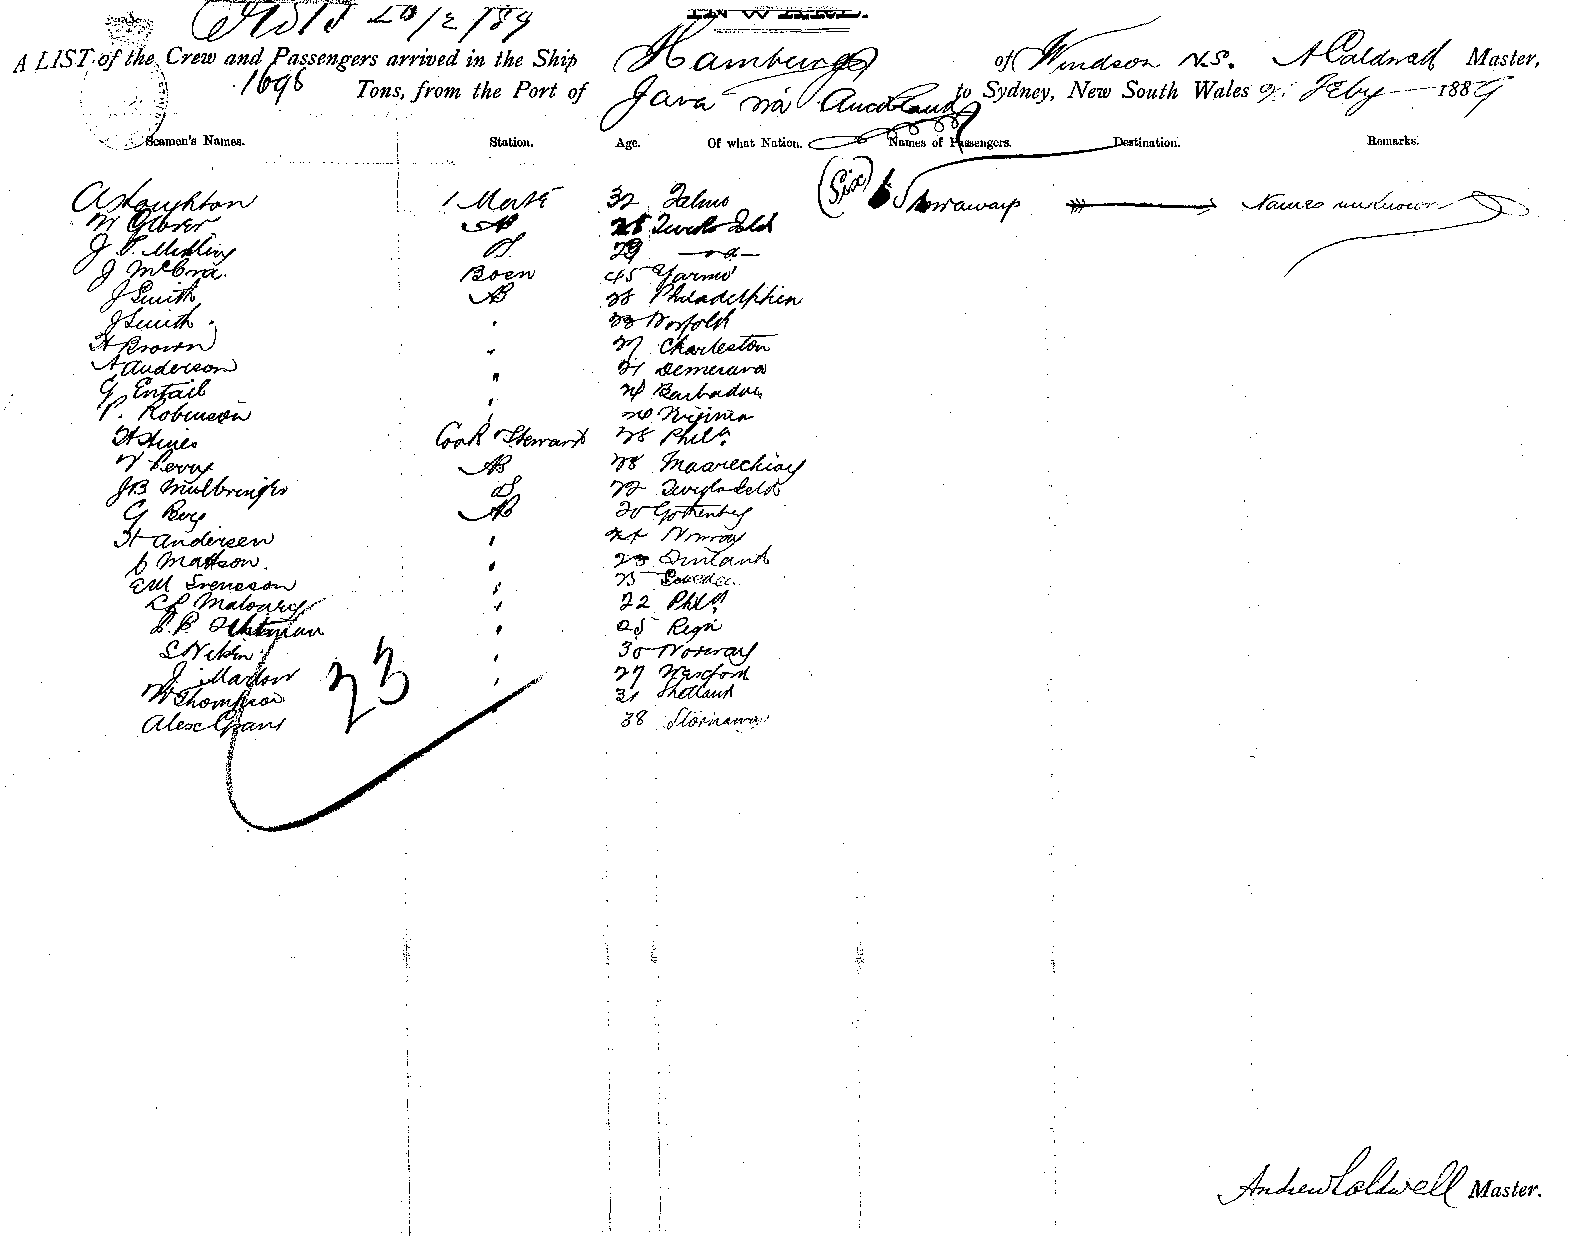 20/2/89
INWARD.
A LIST of the Crew and Passengers arrived in the Ship Hamburg of Windsor N.S. A Caldwell Master,
1698 Tons, from the Port of Java via Auckland to Sydney, New South Wales Feby 1889
Seamen's Names. Station. Age. Of what Nation. Names of Passengers. Destination. Remarks.
A Houghton 1 Mate 32 (Six) 6 Stowaways Names unknown
M Glover AB
J 29 — do —
J McCra. Bosn 45
J Smith AB 28 Philadelphia
J Smith " 33 Norfolk
H Brown " 27 Charleston
A Anderson " 21 Demerara
G Entail " 24 Barbados
P. Robinson " 20 Virginia
H Hines Cook & Steward 28 Phila
W Perry AB 28
JB 22
G Berg AB 20 Gothenberg
H Andersen " 24 Norway
Mattson. " 23 Finland
EM Svensson " 25 Sweden
Maloney " 22 Phila
" 25 Riga
" 30 Norway
J Marlow " 27 Wexford
W Thompson " 31 Shetland
Alex Grant 38 Stornaway
23
Andrew Caldwell Master.